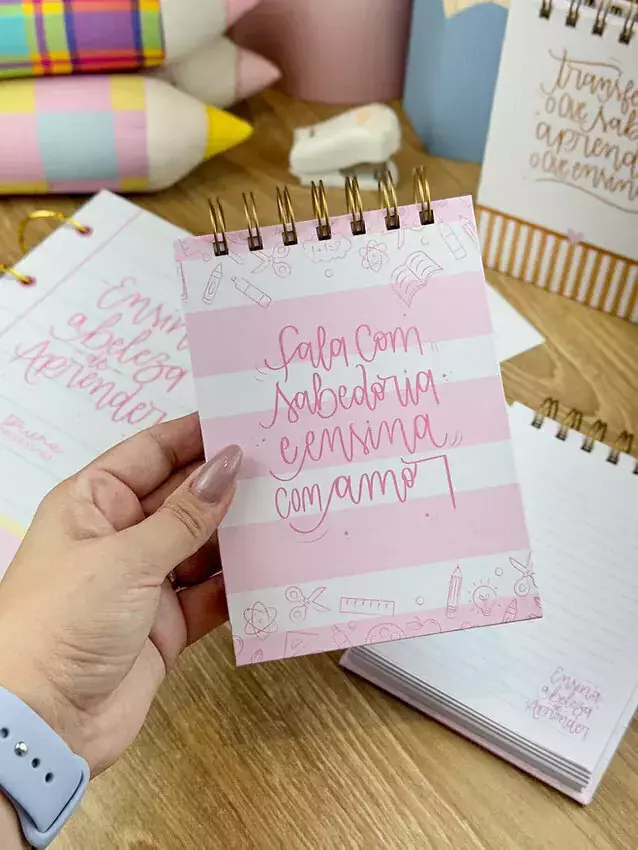 Fala com
sabedoria
e ensina
com amor
Ensina
a beleza
de
Aprender
transfo
o que sab
aprend
o que ensin
Ensina
a beleza
de
Aprender